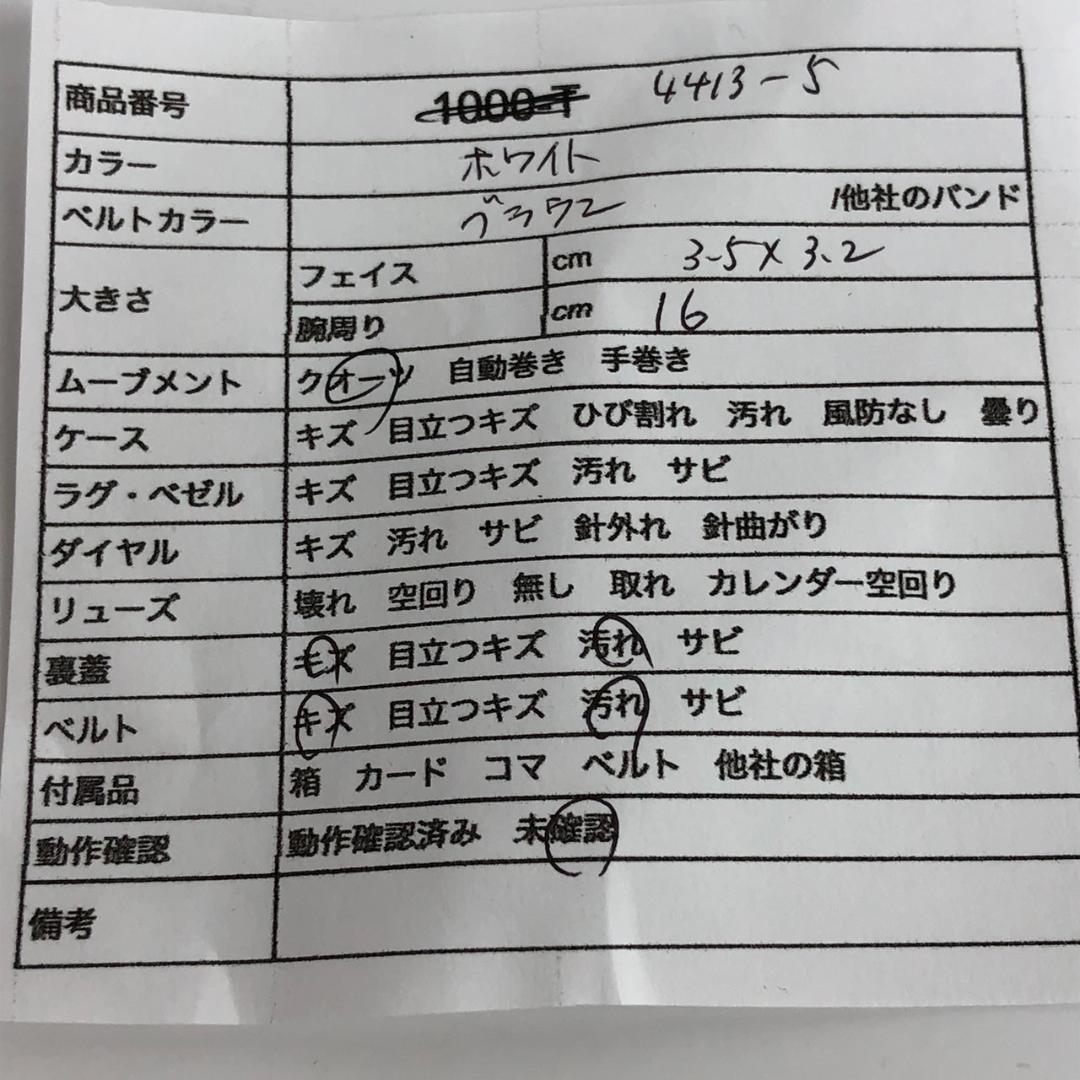 商品番号 1000-T 4413-5
カラー ホワイト
ベルトカラー ブラウン /他社のバンド
大きさ フェイス cm 3.5×3.2
腕周り cm 16
ムーブメント クオーツ 自動巻き 手巻き
ケース キズ 目立つキズ ひび割れ 汚れ 風防なし 曇り
ラグ・ベゼル キズ 目立つキズ 汚れ サビ
ダイヤル キズ 汚れ サビ 針外れ 針曲がり
リューズ 壊れ 空回り 無し 取れ カレンダー空回り
裏蓋 キズ 目立つキズ 汚れ サビ
ベルト キズ 目立つキズ 汚れ サビ
付属品 箱 カード コマ ベルト 他社の箱
動作確認 動作確認済み 未確認
備考